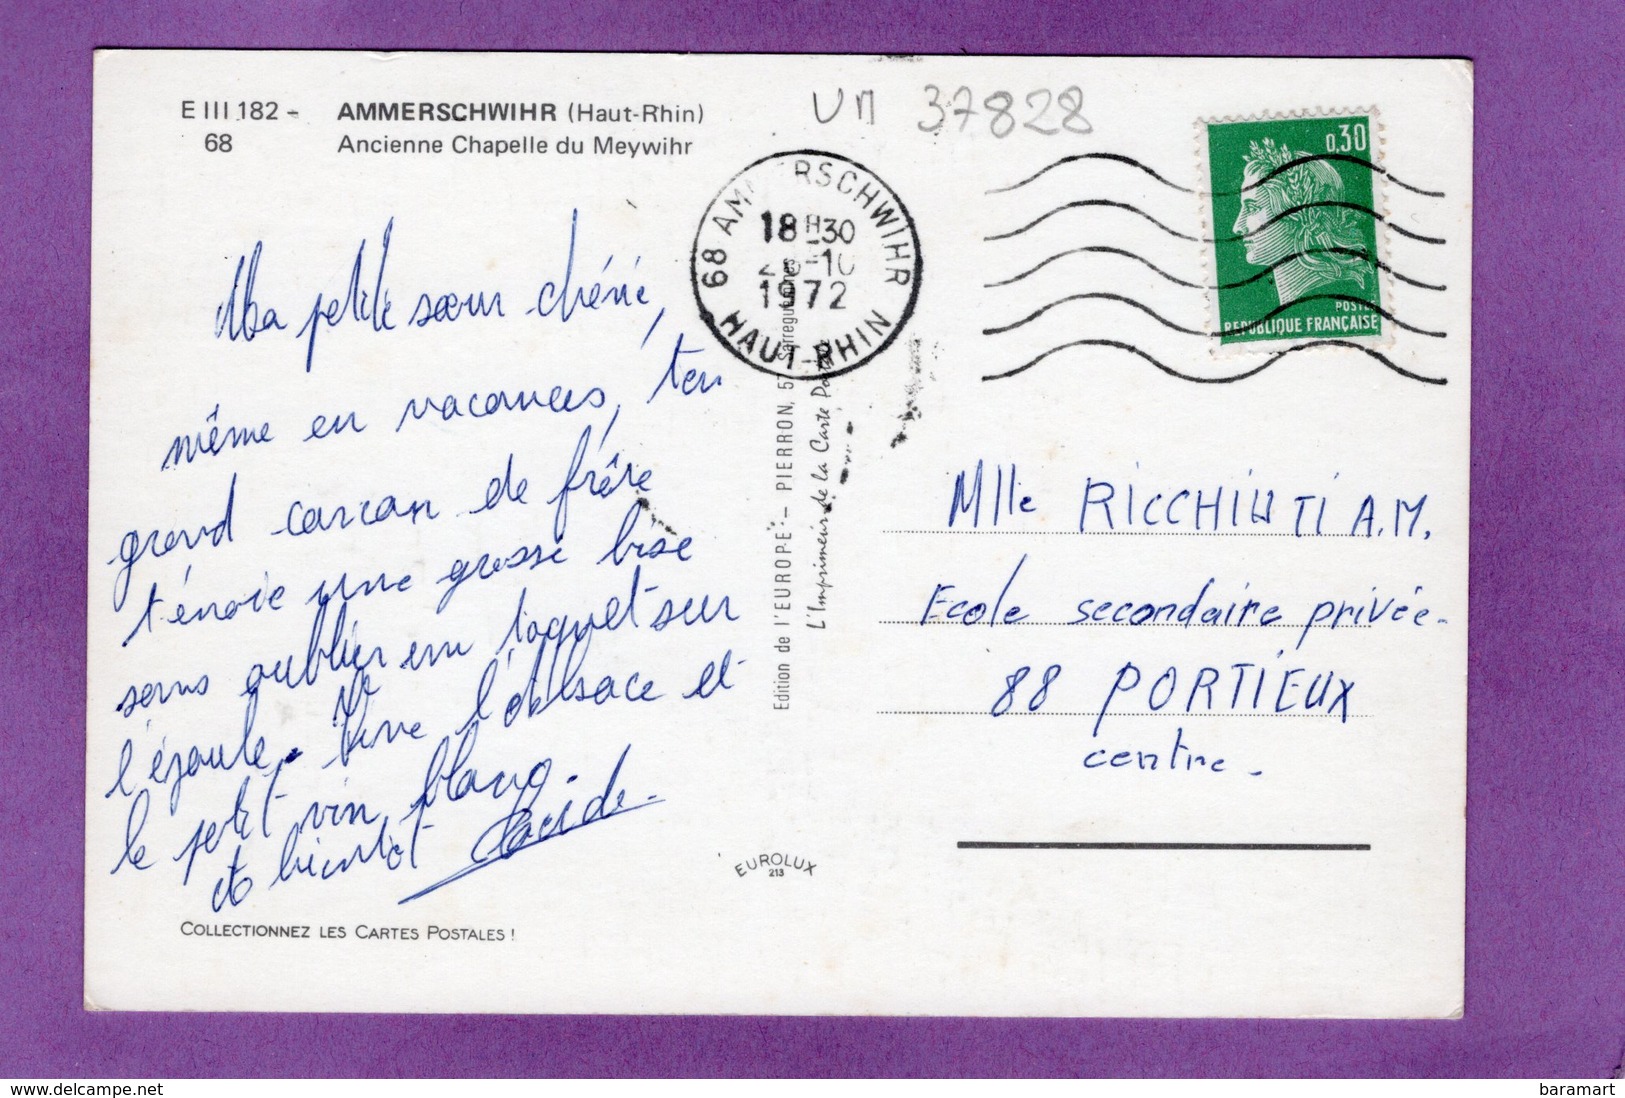 E III 182 - AMMERSCHWIHR (Haut-Rhin)
68 Ancienne Chapelle du Meywihr
un 37828
0,30
POSTES
REPUBLIQUE FRANÇAISE
68 AMMERSCHWIHR
18 H 30
-10
1972
HAUT-RHIN
Ma petite sœur chérie,
même en vacances, ton
grand carcan de frère
t'envoie une grosse bise
sans oublier un taquet sur
l'épaule. Vive l'Alsace et
le petit vin blanc.
à bientôt
Edition de l'EUROPE - PIERRON, 57 Sarreguemines
L'Imprimeur de la Carte Postale
Mlle RICCHIUTI A.M.
Ecole secondaire privée.
88 PORTIEUX
centre.
EUROLUX
213
COLLECTIONNEZ LES CARTES POSTALES !
delcampe.net
baramart